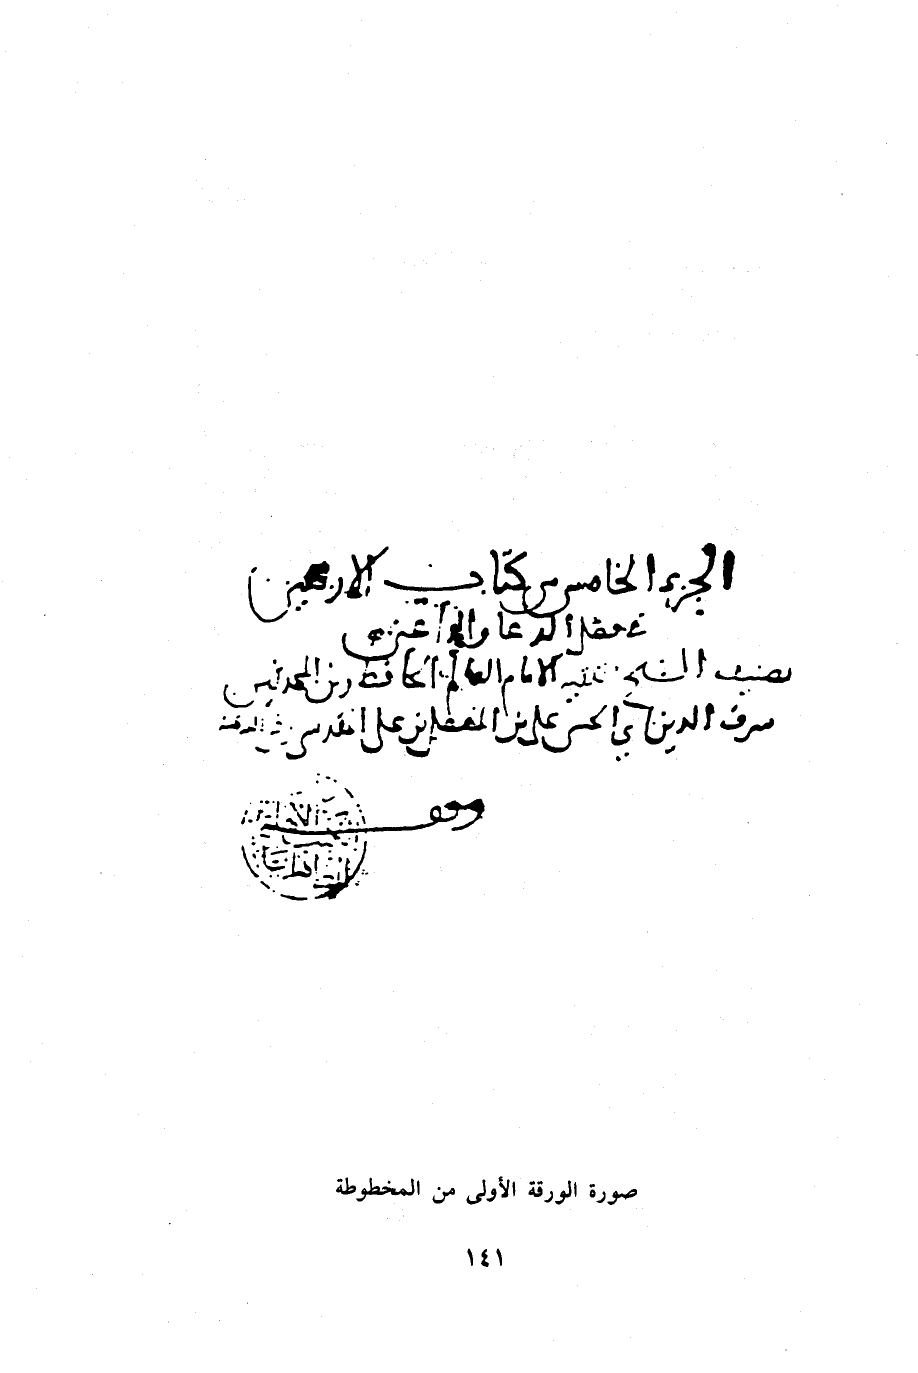 الجزء الخامس من كتاب الاربعين
في فضل الدعا والداعين
تصنيف الشيخ الفقيه الامام العالم الحافظ زين المحدثين
شرف الدين ابي الحسن علي بن المفضل بن علي المقدسي
وقف
صورة الورقة الأولى من المخطوطة
١٤١